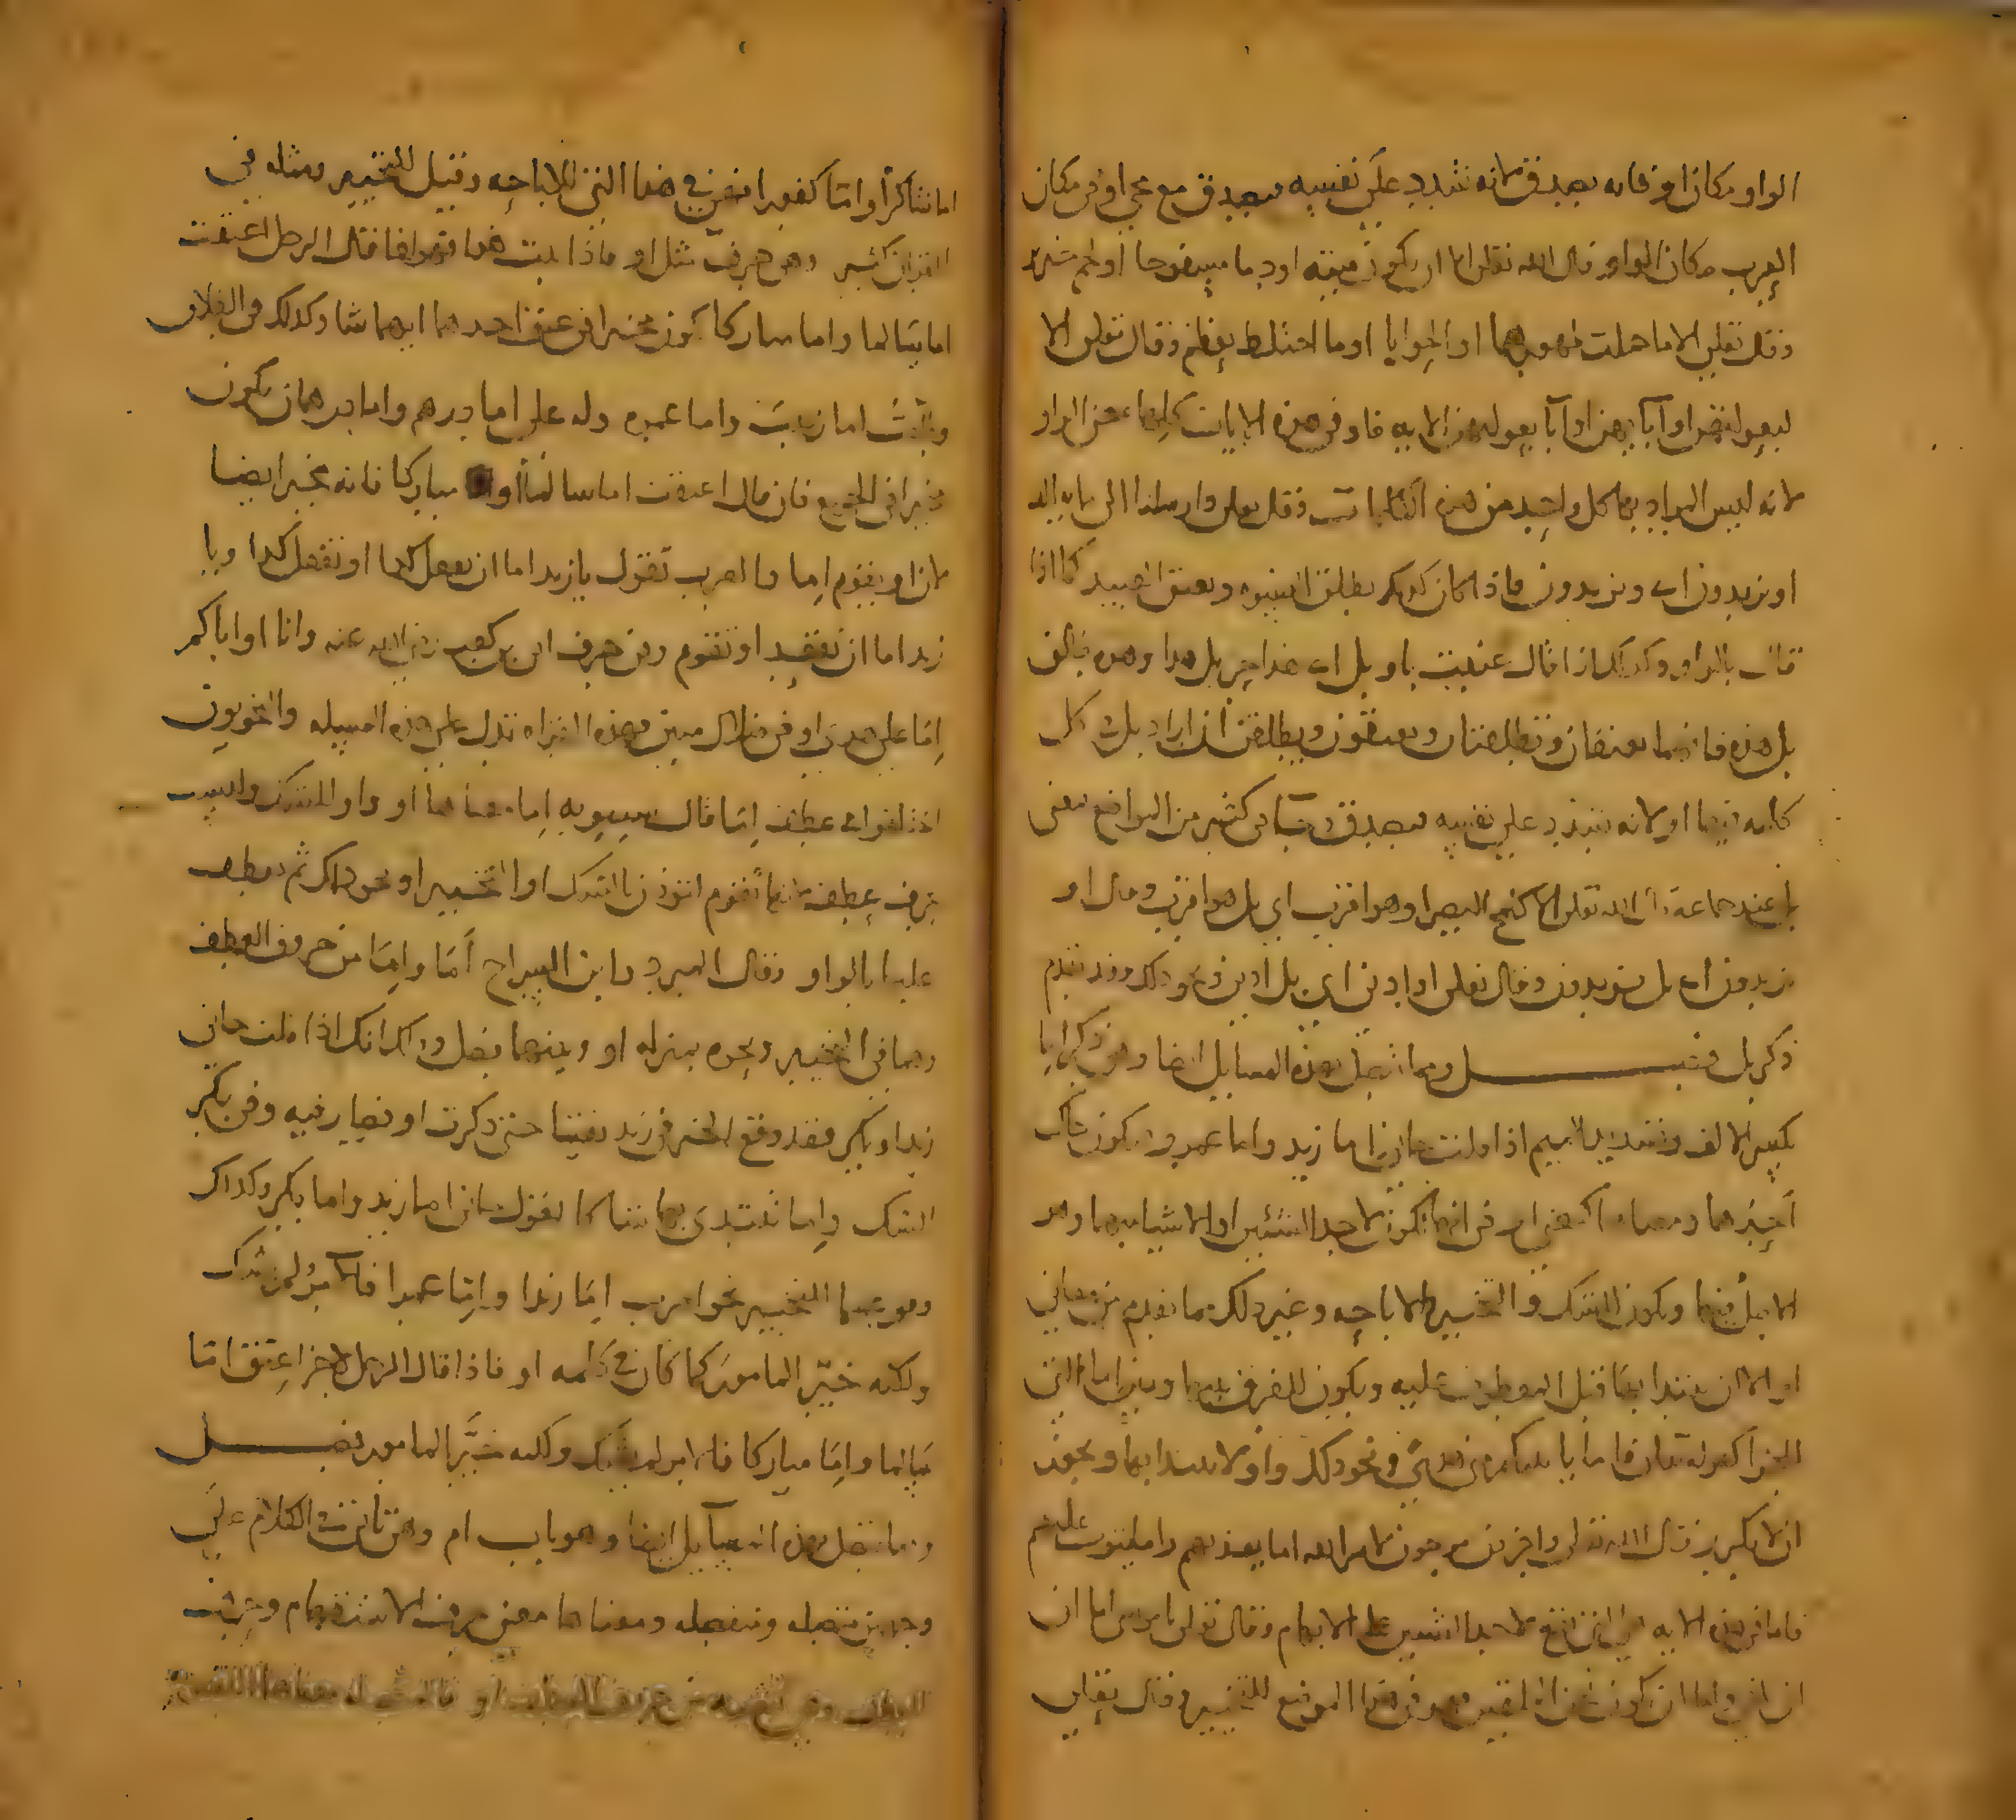 الواو مكان او فانه يصدق لانه شدد على نفسه فيصدق مع مجي او في مكان
العرب مكان الواو قال الله تعلى الا ان يكون ميتة او دما مسفوحا او لحم خنزير
وقال تعلى الا ما حملت ظهورهما او الحوايا او ما اختلط بعظم وقال تعلى الا
لبعولتهن او آبايهن او آبا بعولتهن الايه فاو في هذه الايات كلها بمعنى الواو
لانه ليس المراد بها كل واحد من هذه وقال تعلى وارسلناه الى مايه الف
او يزيدون اى ويزيدون فاذا كان كذلك يطلق النسوه ويعتق العبيد كما اذا
قال بالواو وكذلك اذا قال عنيت باو بل اى هذا حر بل هذا وهذه طالق
بل هذه فانهما يعتقان وتطلقتان ويعتقون ويطلقن ان اراد بل في كل
كلمه منها او لانه شدد على نفسه فيصدق في كثير من المواضع بمعنى
بل عند جماعة قال الله تعلى الا كلمح البصر او هو اقرب اي بل هو اقرب وقال او
يزيدون اى بل يزيدون وقال تعلى او ادنى اي بل ادنى ونحو ذلك وقد تقدم
ذكر بل فصل ومما تتصل بهذه المسايل ايضا وهو ذكر اما
بكسر الالف وتشديد الميم اذا قلت جاني اما زيد واما عمرو تكون شاك
احدهما ومعناها كمعنى او في انها تكون لاحد الشيئين او الاشيا
ويكون للشك والتخيير والاباحه وغير ذلك مما تقدم من معاني
او الا ان يبتدا بها قبل المعطوف عليه ويكون للفرق بينها وبين اما التي
للجزا كقوله تعلى فاما ياتينكم مني هدى ونحو ذلك واو لا يبتدا بها ويجوز
ان لا يكرر قال الله تعلى واخرون مرجون لامر الله اما يعذبهم واما يتوب عليهم
فاما في هذه الايه لاحد الشيين على الابهام وقال تعلى يا موسى اما ان
ان تلقي واما ان نكون نحن الملقين وهو في هذا الموضع للتخيير وقال تعلى
اما شاكرا واما كفورا فهي في هذا النحو للاباحه وقيل للتخيير ومثله في
القران كثير وهي حرف مثل او فاذا ثبت هذا فقال الرجل اعتقت
اما سالما واما مباركا يكون مخيرا في عتق احدهما ايهما شا وكذلك في الطلاق
اما زينب واما عمره وله علي اما درهم واما درهمان يكون
مخيرا في الجميع فان قال اعتقت اما سالما او مباركا فانه مخير ايضا
لان او يقوم اما والعرب تقول يا زيد اما ان تفعل كذا او تفعل كذا ويا
زيد اما ان تقعد او تقوم وفي حرف ابى بن كعب رضى الله عنه وانا او اياكم
اما على هدى او في ضلال مبين فهذه القراه تدل على هذه المسيله والنحويون
اختلفوا في عطف اما قال سيبويه اما معناها او والشك وليست
بحرف عطف لانها تقوم لتوذن بالشك او التخيير او نحو ذلك ثم يعطف
عليها بالواو وقال المبرد وابن السراج اما واما من حروف العطف
وهما في التخيير ونحوه بمنزله او وبينهما فصل وذلك انك اذا قلت جاني
زيد او بكر فقد وقع الخبر في زيد يقينا حتى ذكرت او فصار فيه وفي بكر
الشك واما تبتدى بها شاكا تقول جاني اما زيد واما بكر وكذلك
وموضعها التخيير نحو اضرب اما زيدا واما عمرا فالآمر لم يشك
ولكنه خير المامور كما كان في كلمه او فاذا قال الرجل لاخر اعتق اما
سالما واما مباركا فالآمر لم يشك ولكنه خير المامور فصل
ومما تتصل بهذه المسآيل ايضا وهو باب ام وهي تاتي في الكلام على
وجهين متصله ومنفصله ومعناها معنى حرف الاستفهام وحرف
العطف وهي من حروف العطف او